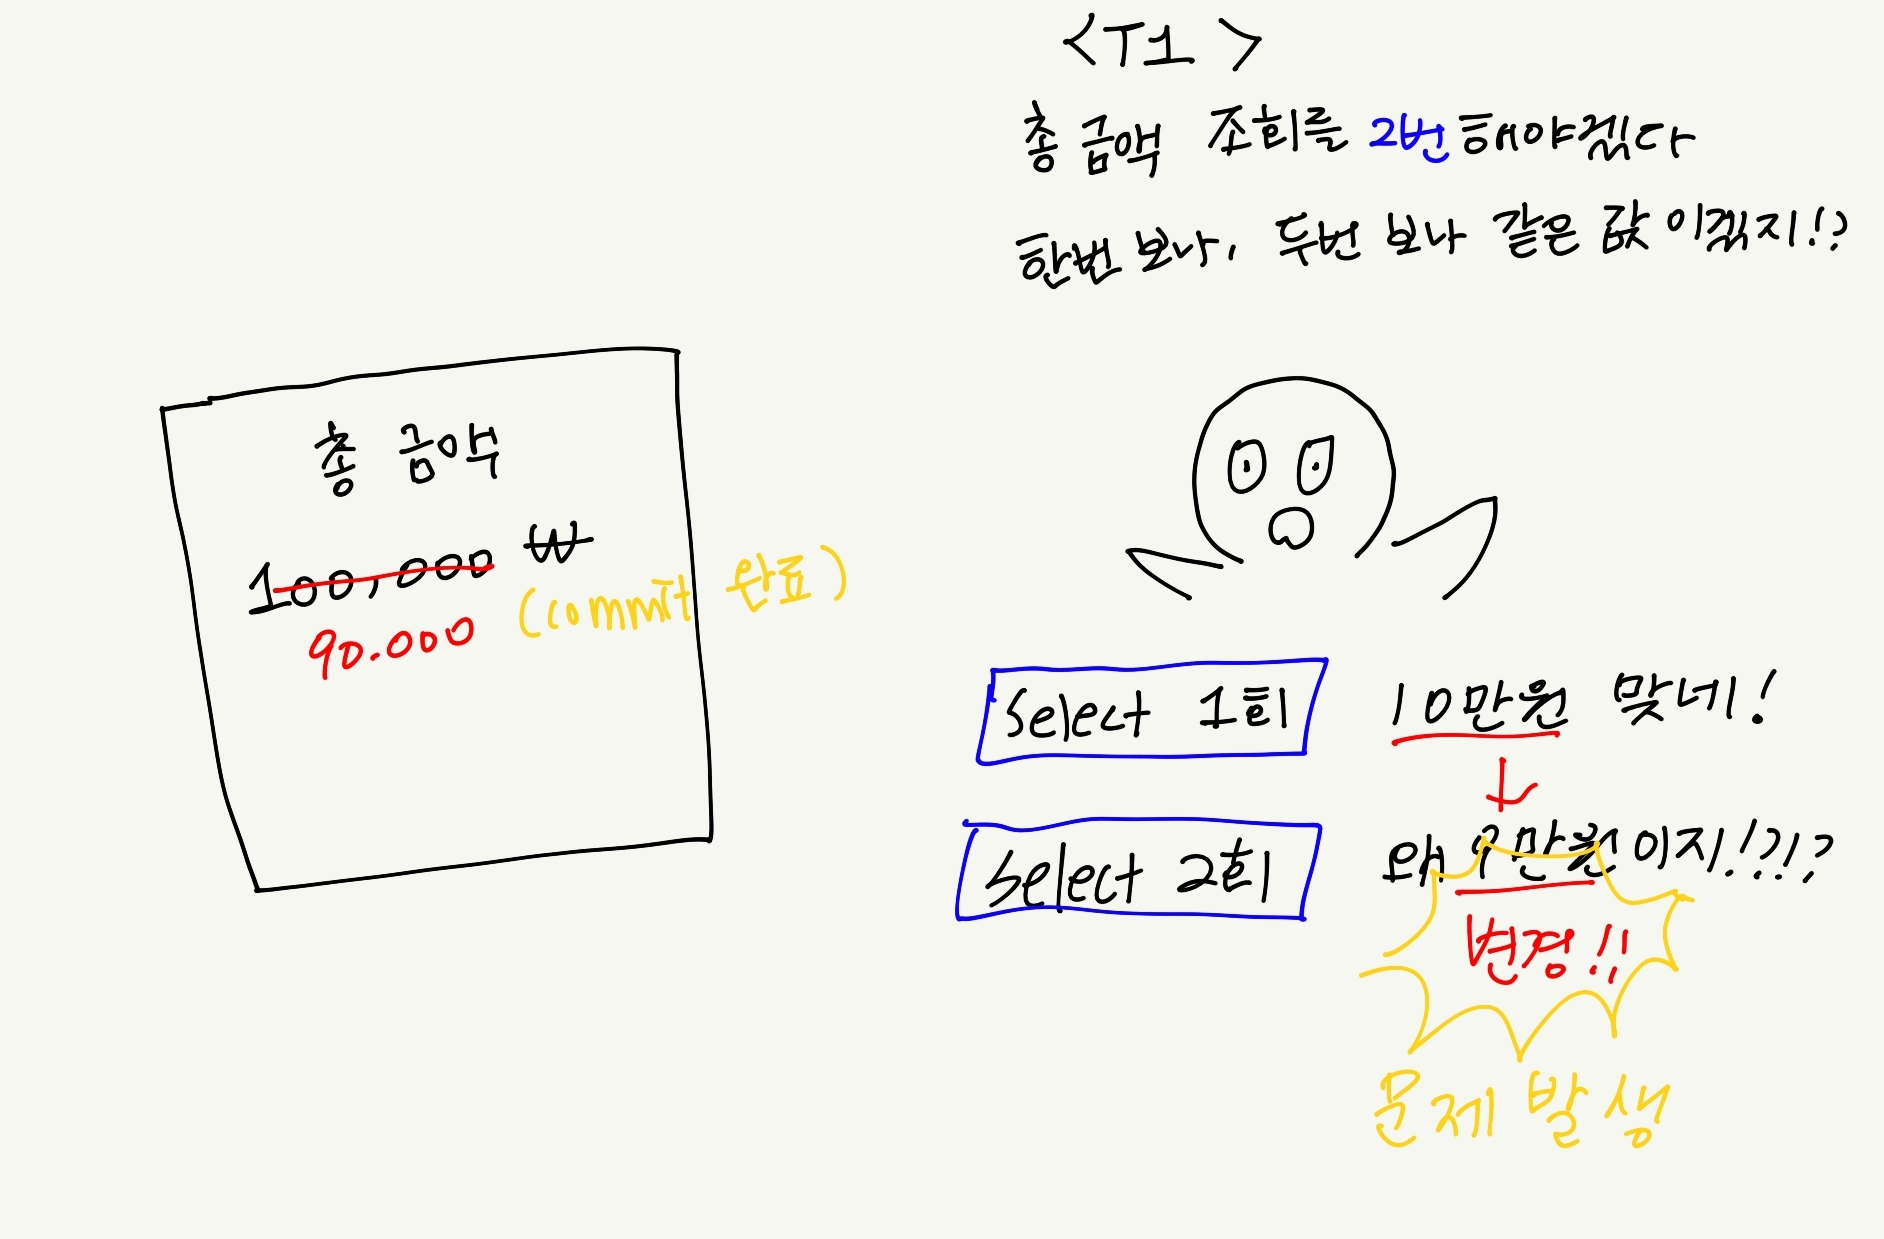 <T1>
총 금액 조회를 2번 해야겠다
한번 보나, 두번 보나 같은 값 이겠지!?
총 금액
100,000 ₩
90.000 (commit 완료)
Select 1회
10만원 맞네!
Select 2회
왜 9만원이지!?!?
변경!!
문제 발생